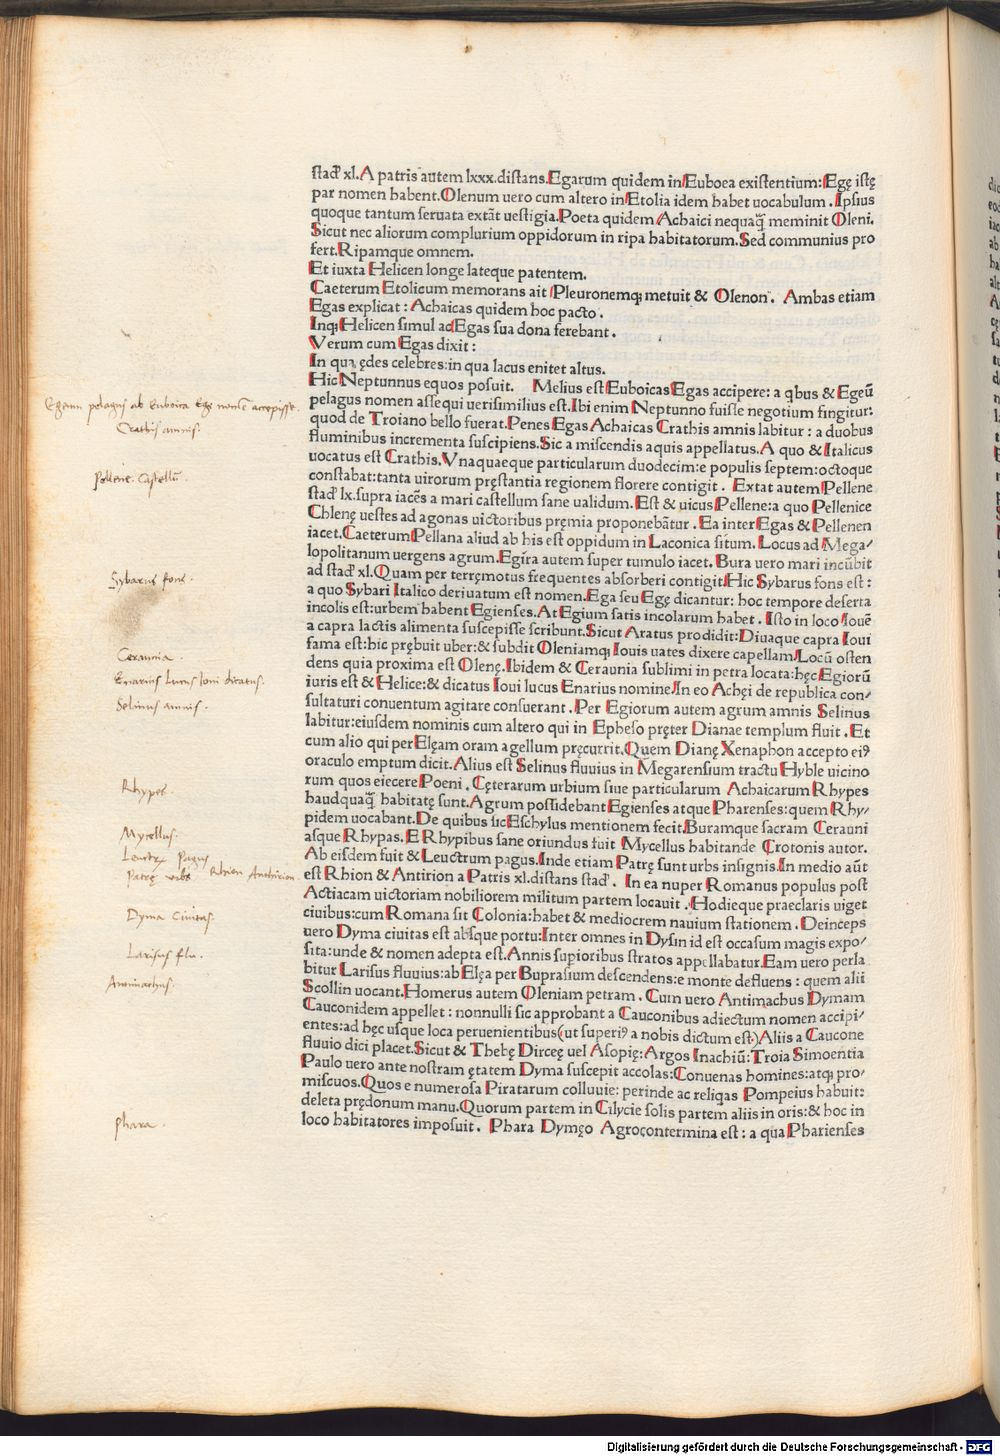 stad᷎ xl. A patris autem lxxx. distans. Egarum quidem in Euboea existentium: Egę istę
par nomen habent. Olenum uero cum altero in Etolia idem habet uocabulum. Ipsius
quoque tantum seruata extāt uestigia. Poeta quidem Achaici nequaq̄ meminit Oleni.
Sicut nec aliorum complurium oppidorum in ripa habitatorum. Sed communius pro
fert. Ripamque omnem.
Et iuxta Helicen longe lateque patentem.
Caeterum Etolicum memorans ait Pleuronemq; metuit & Olenon. Ambas etiam
Egas explicat: Achaicas quidem hoc pacto.
Inq; Helicen simul ad Egas sua dona ferebant.
Verum cum Egas dixit:
In qua ędes celebres: in qua lacus enitet altus.
Hic Neptunnus equos posuit. Melius est Euboicas Egas accipere: a qbus & Egeū
pelagus nomen assequi uerisimilius est. Ibi enim Neptunno fuisse negotium fingitur:
quod de Troiano bello fuerat. Penes Egas Achaicas Crathis amnis labitur: a duobus
fluminibus incrementa suscipiens. Sic a miscendis aquis appellatus. A quo & Italicus
uocatus est Crathis. Vnaquaeque particularum duodecim: e populis septem: octoque
constabat: tanta uirorum pręstantia regionem florere contigit. Extat autem Pellene
stad᷎ lx. supra iacēs a mari castellum sane ualidum. Est & uicus Pellene: a quo Pellenice
Chlenę uestes ad agonas uictoribus pręmia proponebātur. Ea inter Egas & Pellenen
iacet. Caeterum Pellana aliud ab his est oppidum in Laconica situm. Locus ad Mega/
lopolitanum uergens agrum. Egira autem super tumulo iacet. Bura uero mari incūbit
ad stad᷎ xl. Quam per terręmotus frequentes absorberi contigit. Hic Sybarus fons est:
a quo Sybari Italico deriuatum est nomen. Ega seu Egę dicantur: hoc tempore deserta
incolis est: urbem habent Egienses. At Egium satis incolarum habet. Isto in loco Iouē
a capra lactis alimenta suscepisse scribunt. Sicut Aratus prodidit: Diuaque capra Ioui
fama est: hic prębuit uber: & subdit Oleniamq; Iouis uates dixere capellam. Locū osten
dens quia proxima est Olenę. Ibidem & Ceraunia sublimi in petra locata: hęc Egiorū
iuris est & Helice: & dicatus Ioui lucus Enarius nomine. In eo Achęi de republica con/
sultaturi conuentum agitare consuerant. Per Egiorum autem agrum amnis Selinus
labitur: eiusdem nominis cum altero qui in Epheso pręter Dianae templum fluit. Et
cum alio qui per Elęam oram agellum pręcurrit. Quem Dianę Xenaphon accepto eiꝰ
oraculo emptum dicit. Alius est Selinus fluuius in Megarensium tractu Hyble uicino
rum quos eiecere Poeni. Cęterarum urbium siue particularum Achaicarum Rhypes
haudquaq̄ habitatę sunt. Agrum possidebant Egienses atque Pharenses: quem Rhy/
pidem uocabant. De quibus sic Eschylus mentionem fecit. Buramque sacram Cerauni
asque Rhypas. E Rhypibus sane oriundus fuit Mycellus habitande Crotonis autor.
Ab eisdem fuit & Leuctrum pagus. Inde etiam Patrę sunt urbs insignis. In medio aūt
est Rhion & Antirion a Patris xl. distans stad᷎. In ea nuper Romanus populus post
Actiacam uictoriam nobiliorem militum partem locauit. Hodieque praeclaris uiget
ciuibus: cum Romana sit Colonia: habet & mediocrem nauium stationem. Deinceps
uero Dyma ciuitas est absque portu: Inter omnes in Dysin id est occasum magis expo/
sita: unde & nomen adepta est. Annis supioribus stratos appellabatur. Eam uero perla
bitur Larisus fluuius: ab Elęa per Buprasium descendens: e monte defluens: quem alii
Scollin uocant. Homerus autem Oleniam petram. Cum uero Antimachus Dymam
Cauconidem appellet: nonnulli sic approbant a Cauconibus adiectum nomen accipi/
entes: ad hęc usque loca peruenientibus (ut superiꝰ a nobis dictum est.) Aliis a Caucone
fluuio dici placet. Sicut & Thebę Dirceę uel Asopię: Argos Inachiū: Troia Simoentia
Paulo uero ante nostram ętatem Dyma suscepit accolas: Conuenas homines: atq; pro/
miscuos. Quos e numerosa Piratarum colluuie: perinde ac reliqas Pompeius habuit:
deleta prędonum manu. Quorum partem in Cilycie solis partem aliis in oris: & hoc in
loco habitatores imposuit. Phara Dymęo Agro contermina est: a qua Pharienses
Egeum pelagus ab Euboica Ege nomē accepisse.
Crathis amnis.
Pellene. Castellū.
Sybarus fons.
Ceraunia.
Enarius Lucus Ioui dicatus.
Selinus amnis.
Rhypes.
Mycellus.
Leuctrū Pagus
Patrę urbs Rhion Anthirion
Dyma Ciuitas.
Larisus flu.
Antimachus.
Phara.
Digitalisierung gefördert durch die Deutsche Forschungsgemeinschaft - DFG